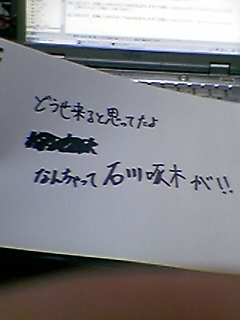 どうせ来ると思ってたよ
なんちゃって石川啄木が!!